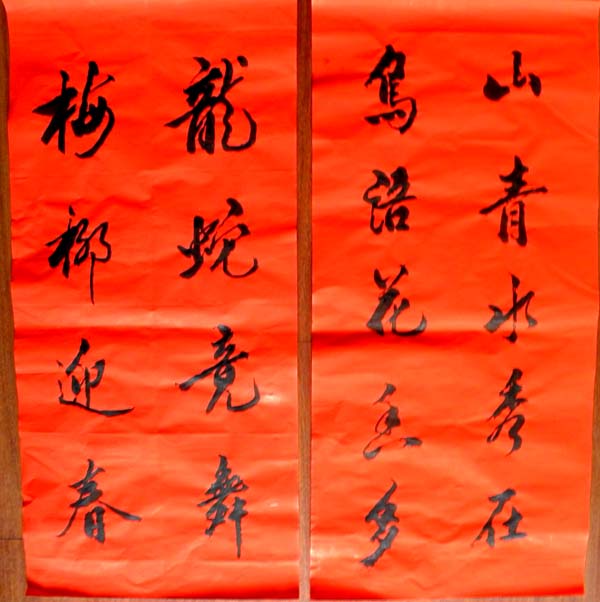 山青水秀在
鳥語花香多
龍蛇竞舞
梅柳迎春